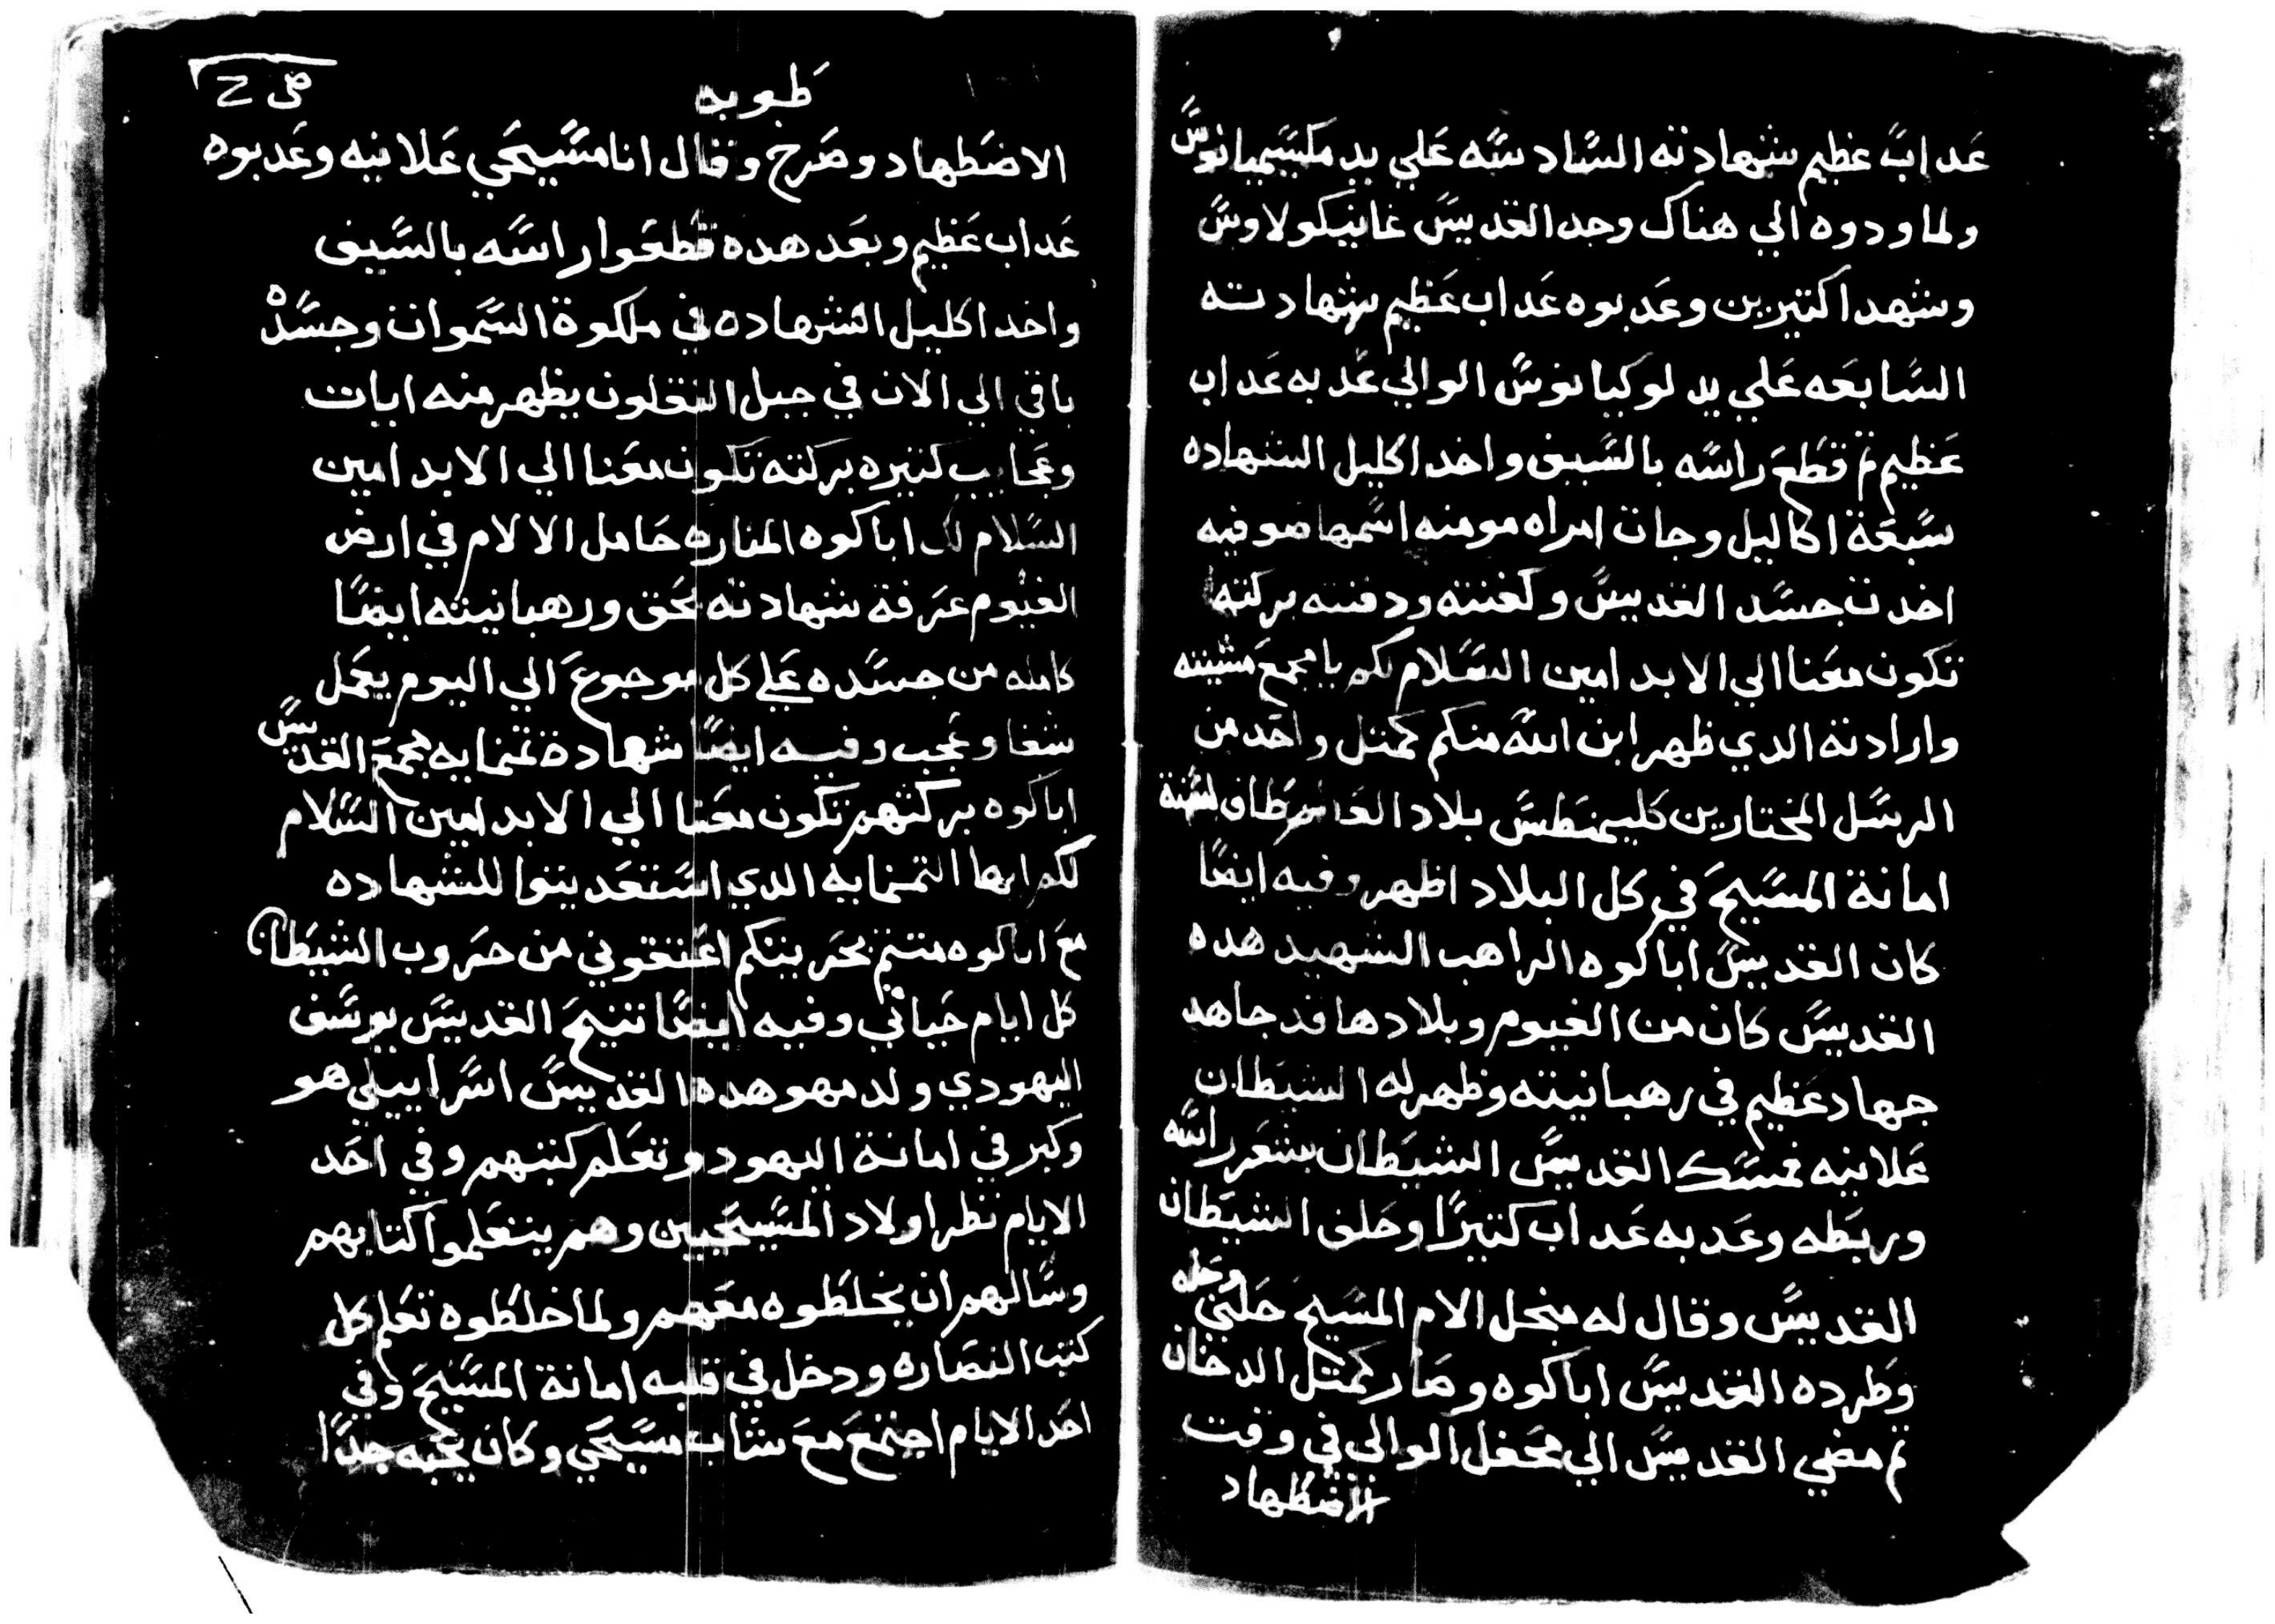 عداب عظيم شهادته السادسه علي يد مكسيميانوس
ولما ودوه الي هناك وجد القديس غانيكولاوس
وشهدا كتيرين وعدبوه عداب عظيم شهادته
السابعه علي يد لوكيانوس الوالي عدبه عداب
عظيم تم قطع راسه بالسيف واخد اكليل الشهاده
سبعة اكاليل وجات امراه مومنه اسمها صوفيه
اخدت جسد القديس وكفنته ودفنته بركته
تكون معنا الي الابد امين السلام لكم يا مجمع مشيته
وارادته الدي ظهر ابن الله منكم كمتل واحد من
الرسل المختارين كليمنطس بلاد
امانة المسيح في كل البلاد اظهر وفيه ايضا
كان القديس اباكوه الراهب الشهيد هده
القديس كان من الفيوم وبلادها قد جاهد
جهاد عظيم في رهبانيته وظهر له الشيطان
علانيه فمسك القديس الشيطان بشعر راسه
وربطه وعدبه عداب كتيرا وحلف الشيطان
القديس وقال له منجل الام المسيح حلني وحله
وطرده القديس اباكوه وصار كمتل الدخان
تم مضي القديس الي محفل الوالي في وقت
الاضطهاد
طوبه
الاضطهاد وصرخ وقال انا مسيحي علانيه وعدبوه
عداب عظيم وبعد هده قطعوا راسه بالسيف
واخد اكليل الشهاده في ملكوة السموات وجسده
باقي الي الان في جبل النقلون يظهر منه ايات
وعجايب كتيره بركته تكون معنا الي الابد امين
السلام لك اباكوه المناره حامل الالام في ارض
الفيوم عرفة شهادته بحق ورهبانيته ايضا
كامله من جسده علي كل موجوع الي اليوم يعمل
شفا وعجب وفيه ايضا شهادة تمنمايه مجمع القديس
اباكوه بركتهم تكون معنا الي الابد امين السلام
لكم ايها التمنمايه الدي استعديتوا للشهاده
مع اباكوه متتم بحريتكم اعتقوني من حروب الشيطان
كل ايام حياتي وفيه ايضا تنيح القديس يوسف
اليهودي ولد مهو هده القديس اسراييلي هو
وكبر في امانة اليهود وتعلم كتبهم وفي احد
الايام نظر اولاد المسيحيين وهم يتعلموا كتابهم
وسالهم ان يخلطوه معهم ولما خلطوه تعلم كل
كتب النصاره ودخل في قلبه امانة المسيح وفي
احد الايام اجتمع مع شاب مسيحي وكان يحبه جدا